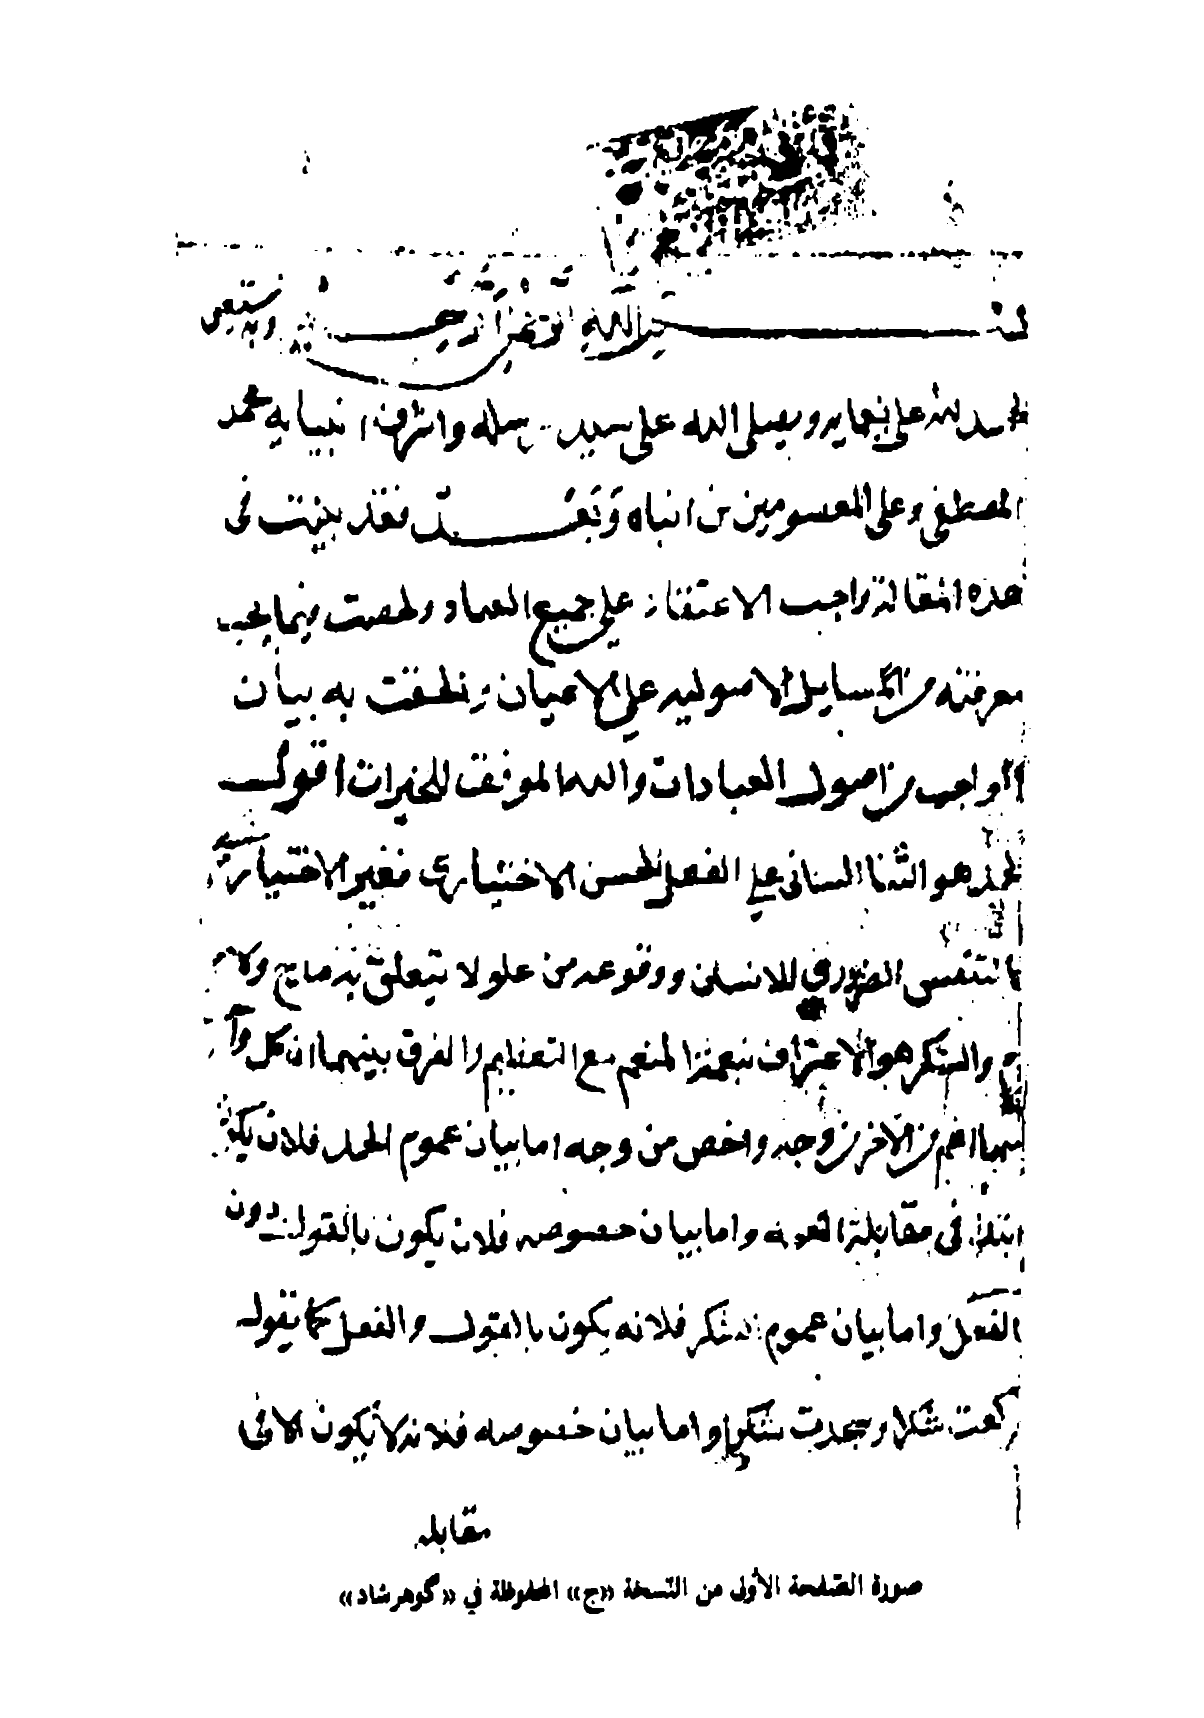 بسم الله الرحمن الرحيم وبه نستعين
الحمد لله على نعمايه وصلى الله على سيد رسله واشرف انبيايه محمد
المصطفى وعلى المعصومين من ابناه وبعد فقد بينت فى
هذه المقالة واجب الاعتقاد على جميع العباد ولخصت فيما يجب
معرفته من المسايل الاصوليه على الاعيان والحقت به بيان
الواجب من اصول العبادات والله الموفق للخيرات اقول
الحمد هو الثنا اللسانى على الفعل الحسن الاختيارى فغير الاختيارى
كالتنفس الضروري للانسان ووقوعه من علو لا يتعلق به مدح ولا
والشكر هو الاعتراف بنعمة المنعم مع التعظيم والفرق بينهما ان كل وا
منهما اعم من الاخر من وجه واخص من وجه اما بيان عموم الحمد فلانه يكون
ابتداء فى مقابلة النعمه واما بيان خصوصه فلانه يكون بالقول دون
الفعل واما بيان عموم الشكر فلانه يكون بالقول والفعل كما يقول
ركعت شكرا وسجدت شكرا واما بيان خصوصه فلانه لا يكون الا فى
مقابله
صورة الصفحة الأولى من النسخة «ج» المحفوظة في «گوهرشاد»